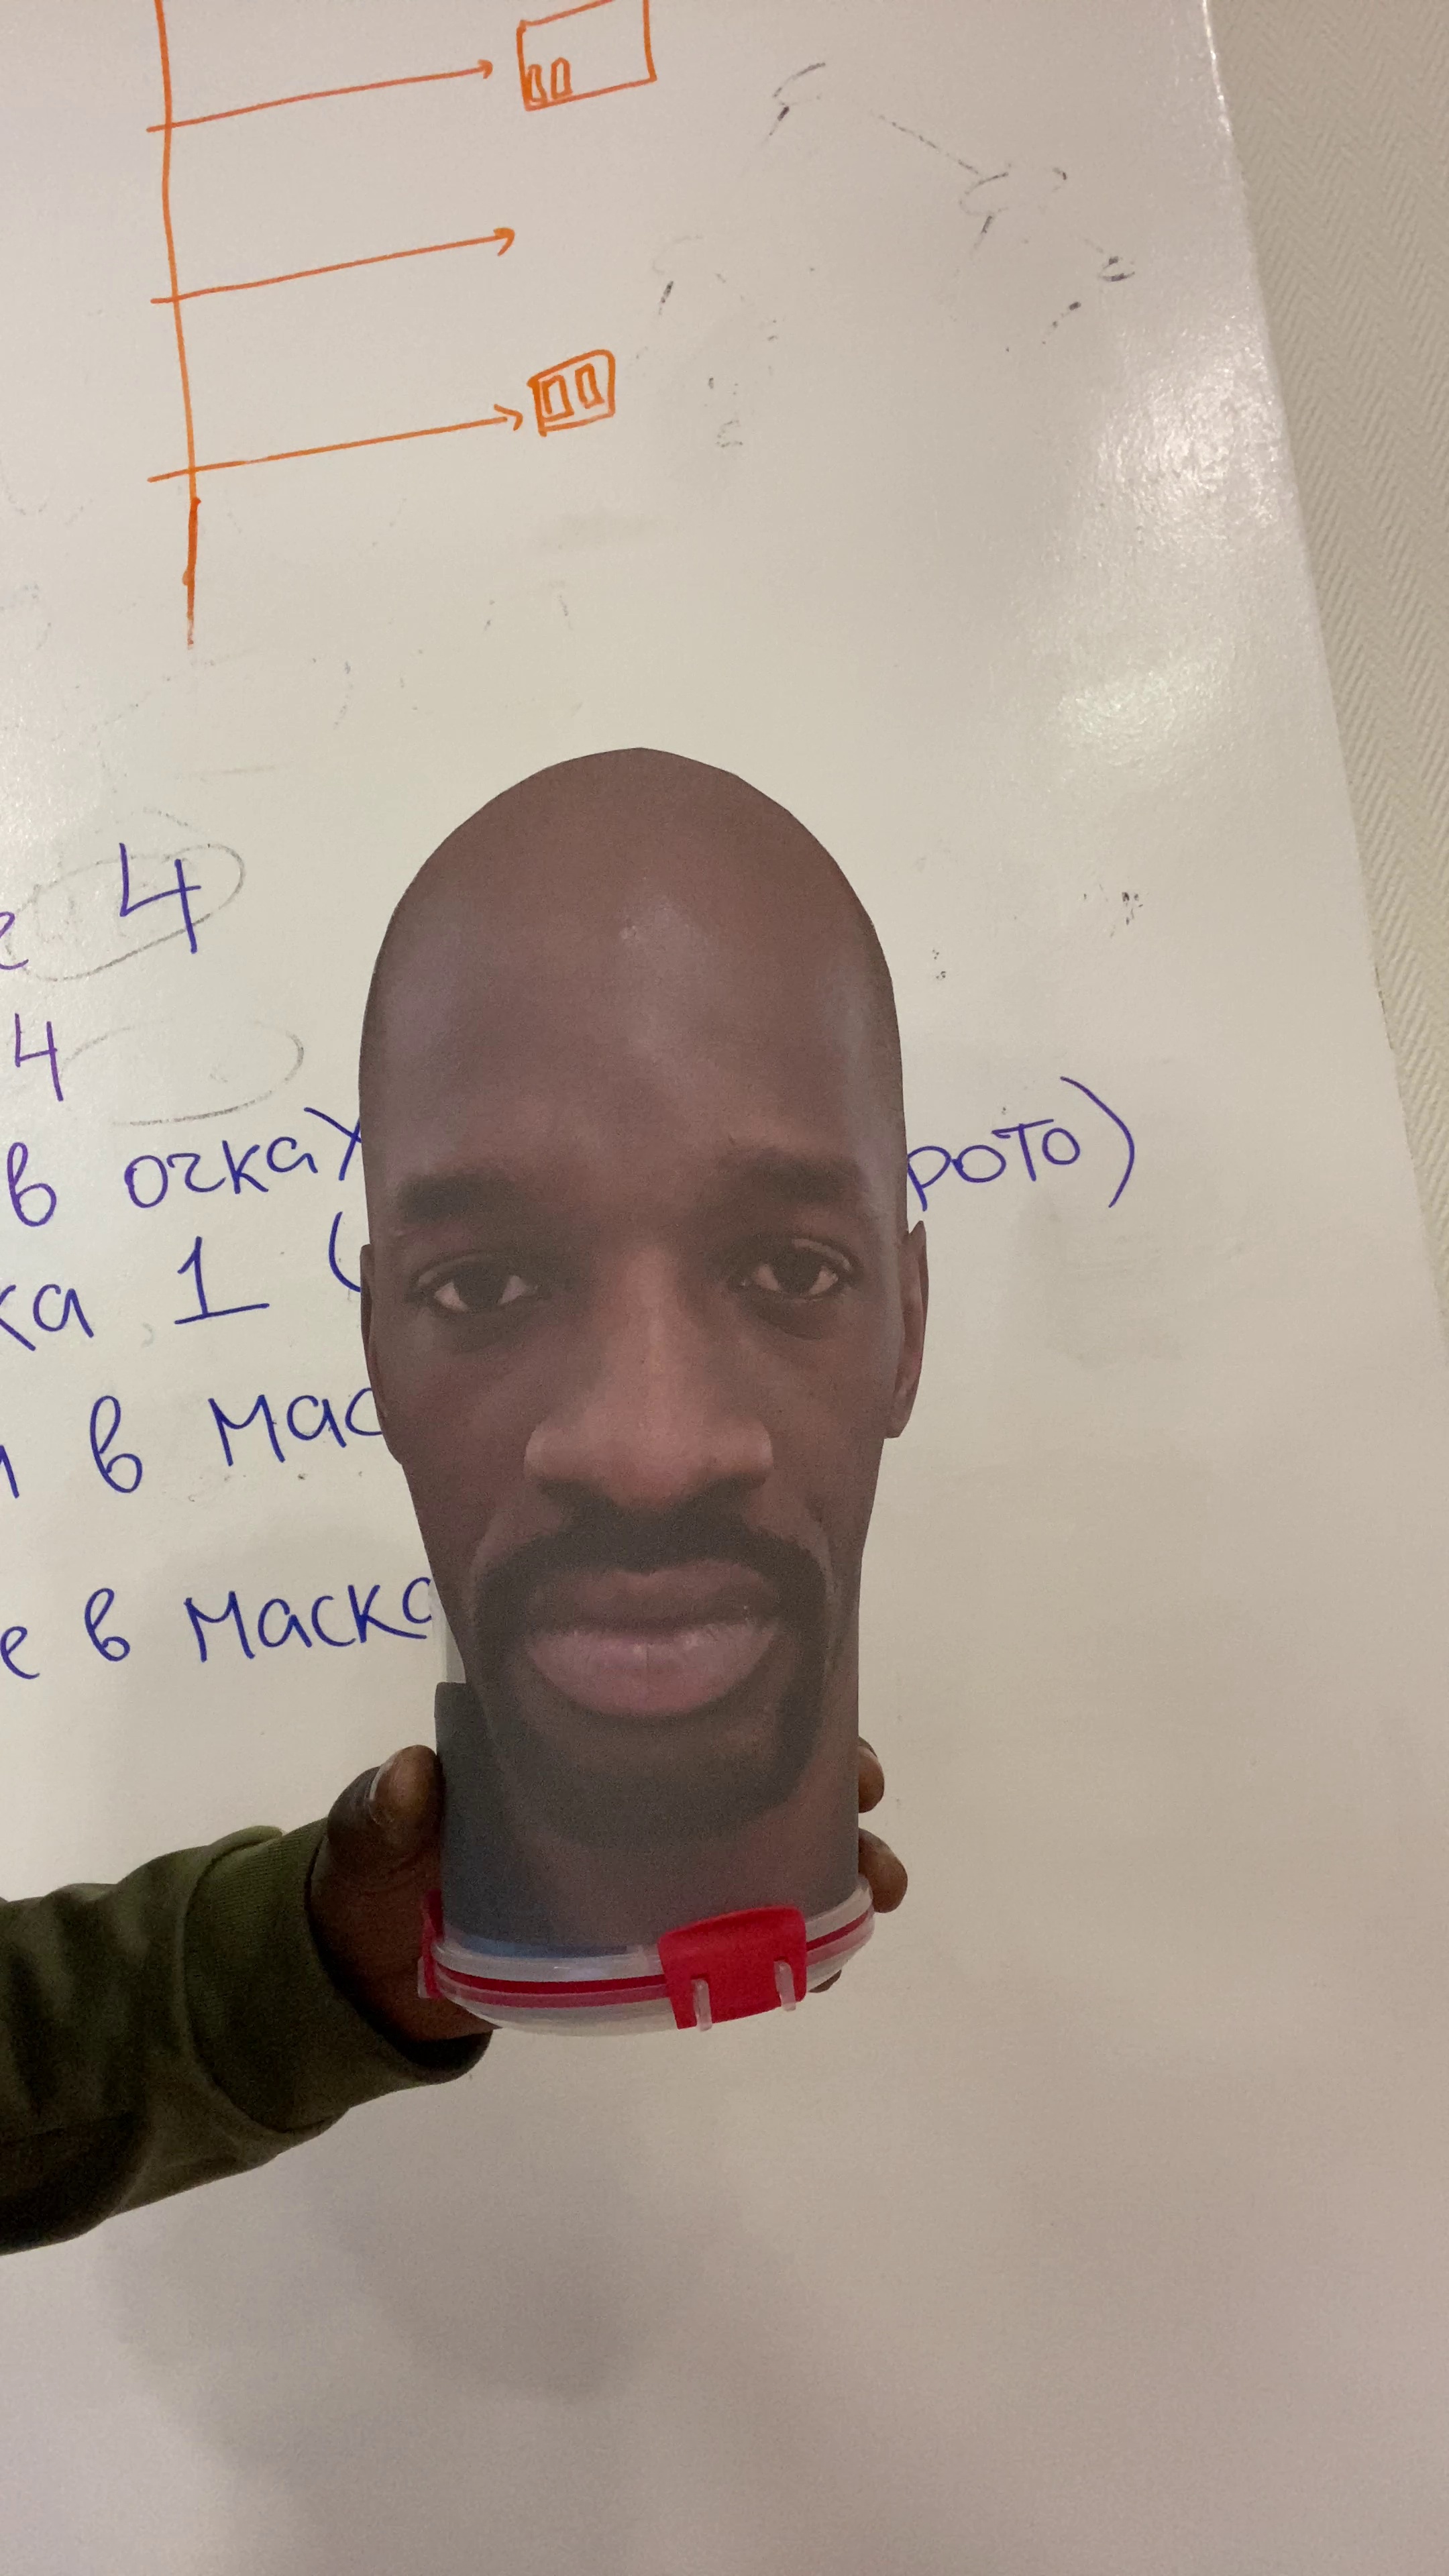 4
4
в очках рото)
ка 1 (
в мас
е в маска